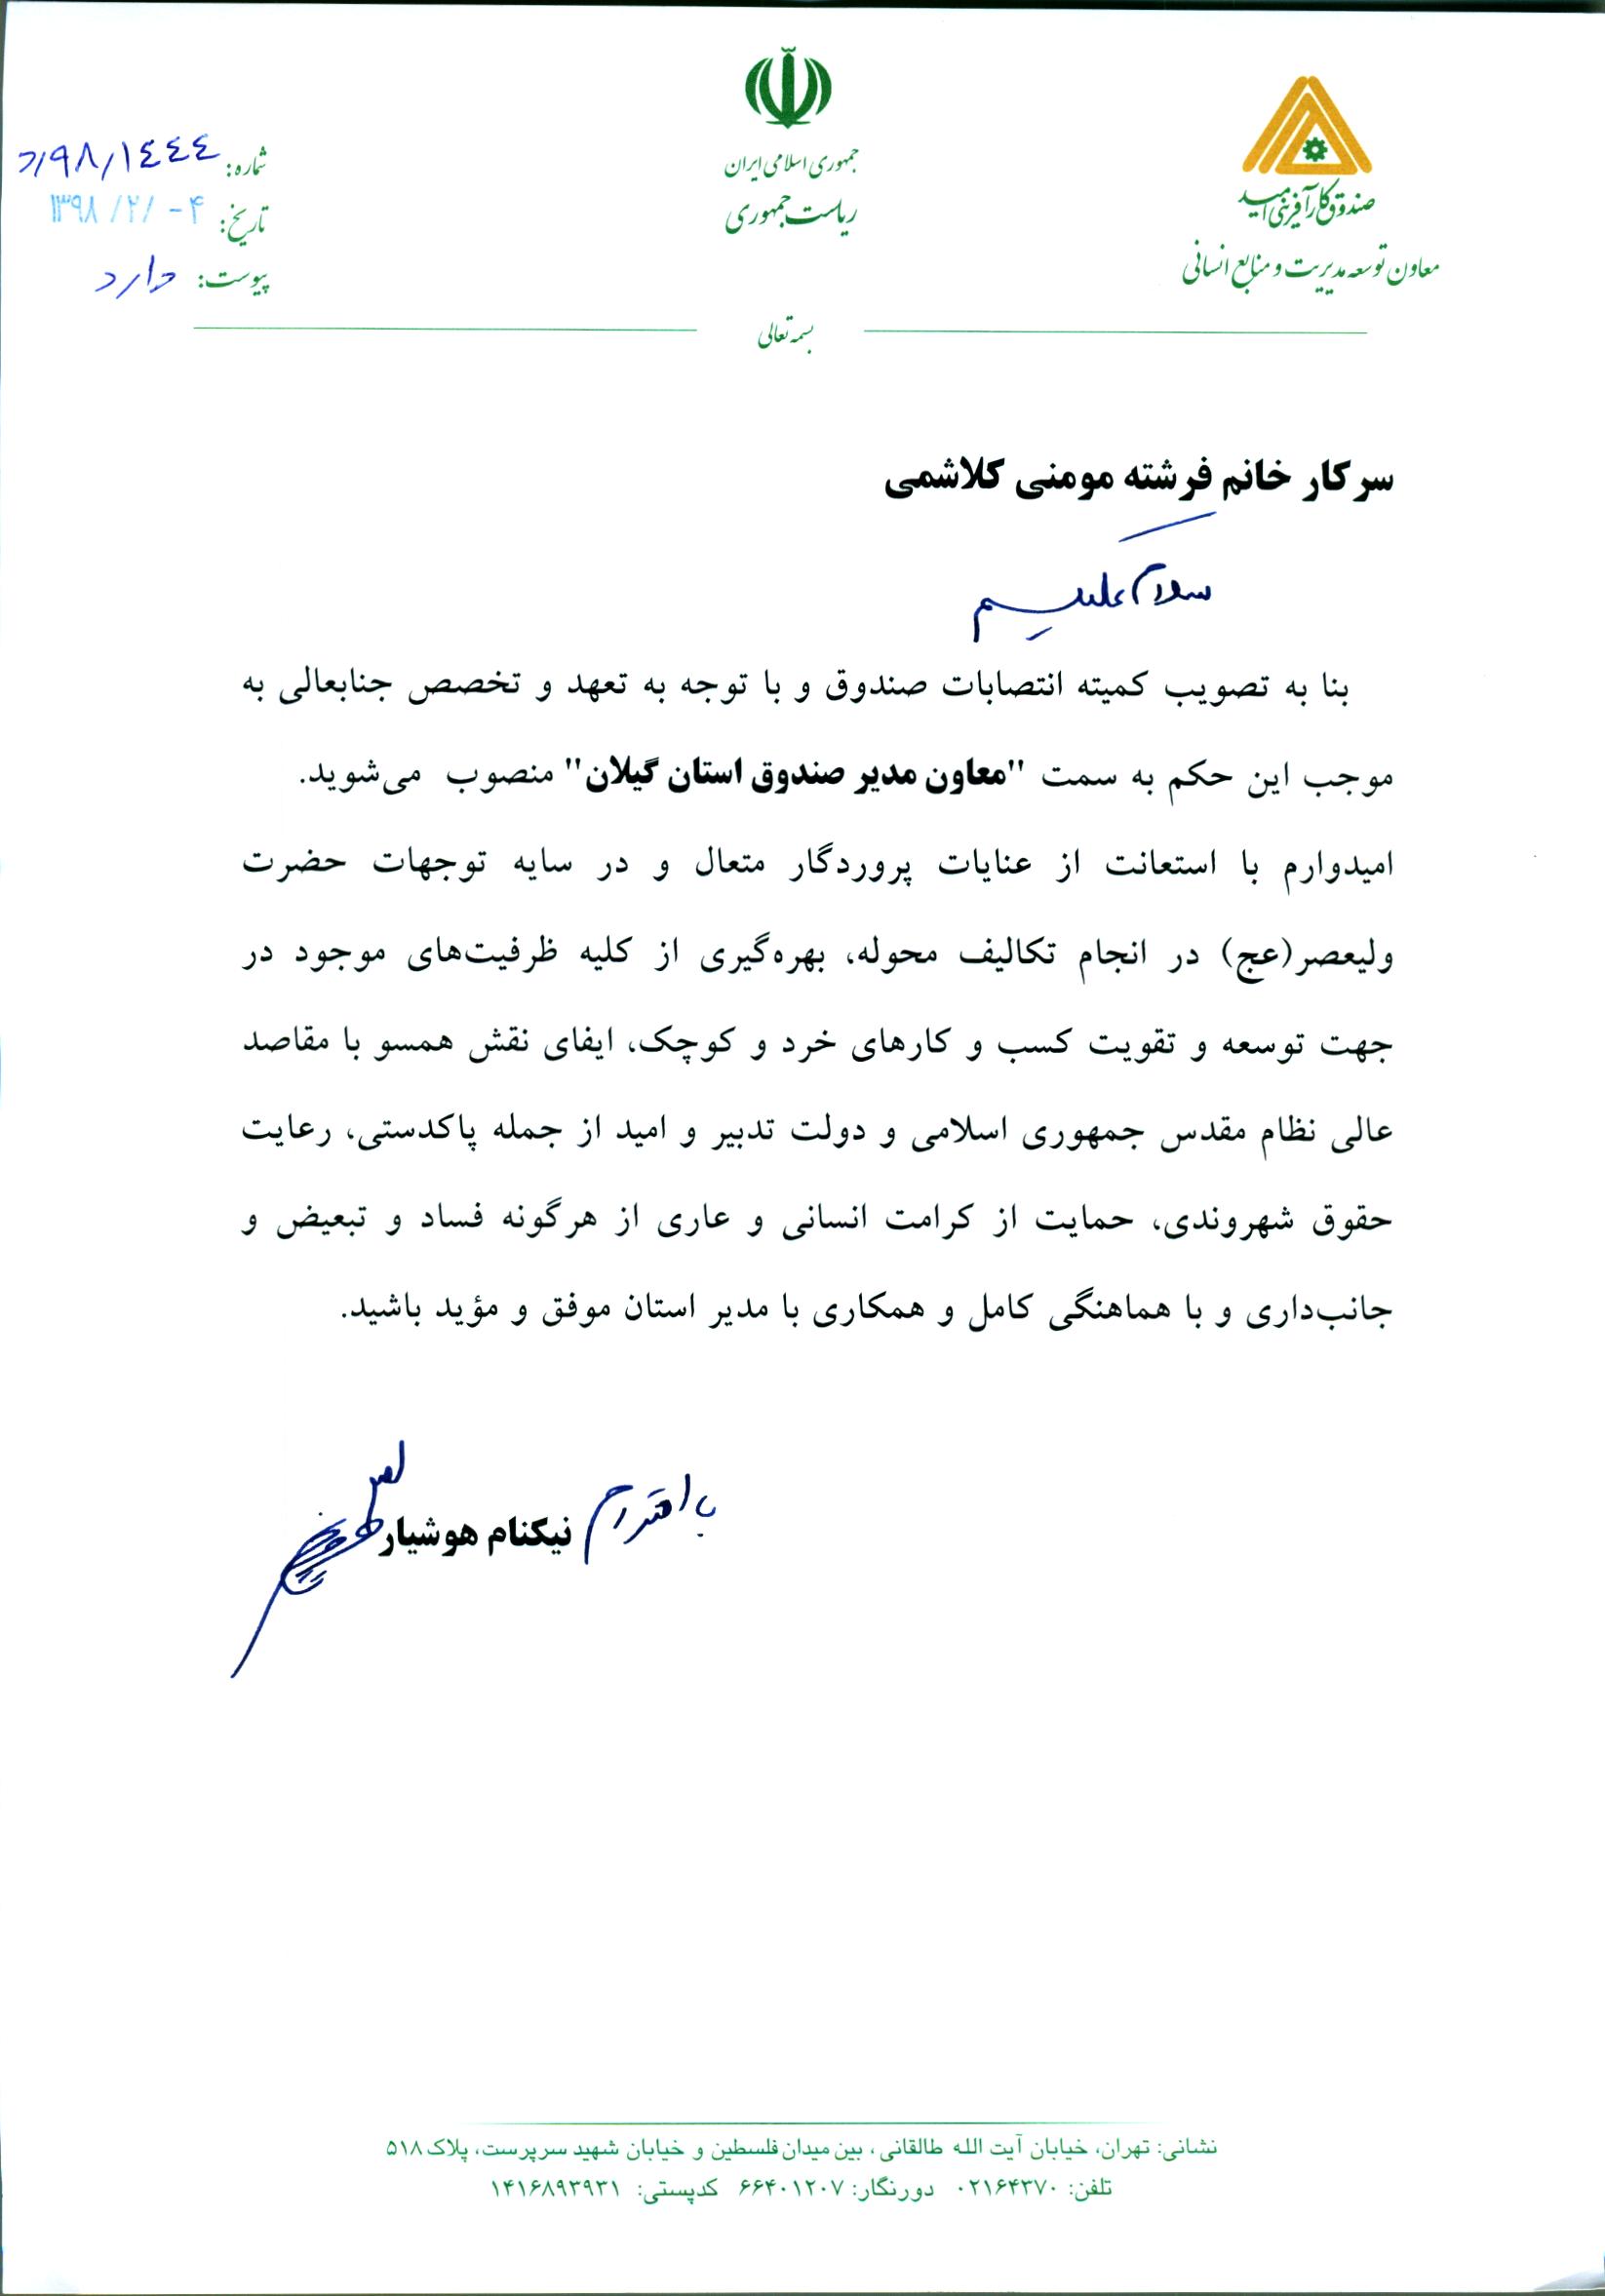 جمهوری اسلامی ایران
ریاست جمهوری
صندوق کارآفرینی امید
معاون توسعه مدیریت و منابع انسانی
شماره: ۹۸/۱٤٤٤/د
تاریخ: ۱۳۹۸/۲/-۴
پیوست: دارد
بسمه تعالی
سرکار خانم فرشته مومنی کلاشمی
سلام علیکم
بنا به تصویب کمیته انتصابات صندوق و با توجه به تعهد و تخصص جنابعالی به
موجب این حکم به سمت "معاون مدیر صندوق استان گیلان" منصوب می‌شوید.
امیدوارم با استعانت از عنایات پروردگار متعال و در سایه توجهات حضرت
ولیعصر(عج) در انجام تکالیف محوله، بهره‌گیری از کلیه ظرفیت‌های موجود در
جهت توسعه و تقویت کسب و کارهای خرد و کوچک، ایفای نقش همسو با مقاصد
عالی نظام مقدس جمهوری اسلامی و دولت تدبیر و امید از جمله پاکدستی، رعایت
حقوق شهروندی، حمایت از کرامت انسانی و عاری از هرگونه فساد و تبعیض و
جانب‌داری و با هماهنگی کامل و همکاری با مدیر استان موفق و مؤید باشید.
با احترام نیکنام هوشیار
نشانی: تهران، خیابان آیت الله طالقانی، بین میدان فلسطین و خیابان شهید سرپرست، پلاک ۵۱۸
تلفن: ۰۲۱۶۴۳۷۰ دورنگار: ۶۶۴۰۱۲۰۷ کدپستی: ۱۴۱۶۸۹۳۹۳۱